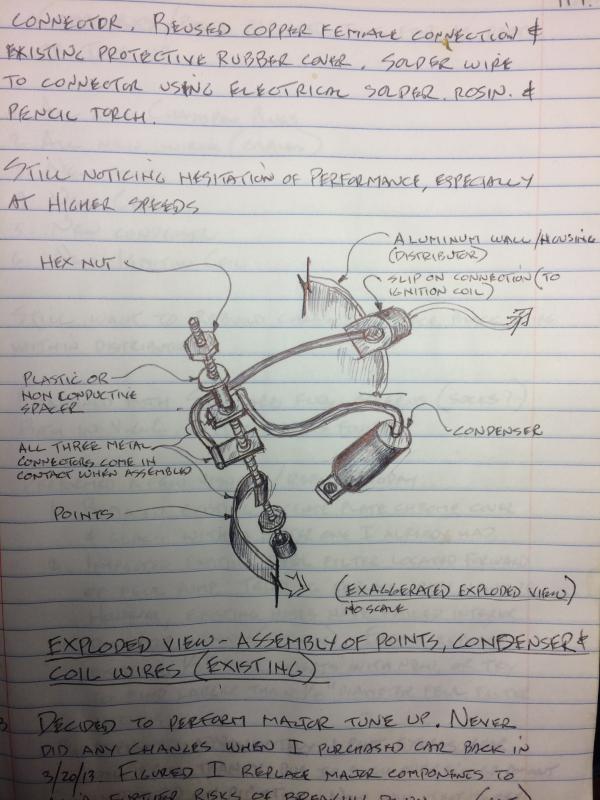 CONNECTOR. REUSED COPPER FEMALE CONNECTION &
EXISTING PROTECTIVE RUBBER COVER. SOLDER WIRE
TO CONNECTOR USING ELECTRICAL SOLDER. ROSIN. &
PENCIL TORCH.
STILL NOTICING HESITATION OF PERFORMANCE, ESPECIALLY
AT HIGHER SPEEDS
ALUMINUM WALL/HOUSING
(DISTRIBUTER)
HEX NUT
SLIP ON CONNECTION (TO
IGNITION COIL)
PLASTIC OR
NON CONDUCTIVE
SPACER
CONDENSER
ALL THREE METAL
CONNECTORS COME IN
CONTACT WHEN ASSEMBLED
POINTS
(EXAGGERATED EXPLODED VIEW)
NO SCALE
EXPLODED VIEW - ASSEMBLY OF POINTS, CONDENSER &
COIL WIRES (EXISTING)
DECIDED TO PERFORM MAJOR TUNE UP. NEVER
DID ANY CHANGES WHEN I PURCHASED CAR BACK IN
3/20/13. FIGURED I REPLACE MAJOR COMPONENTS TO
FURTHER RISKS OF BREAKING DOWN